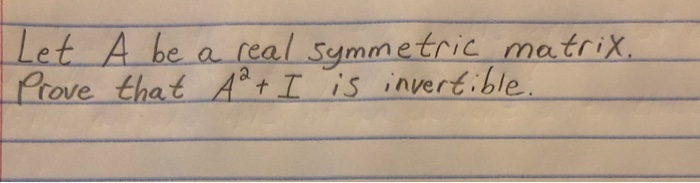 Let A be a real symmetric matrix.
Prove that A² + I is invertible.